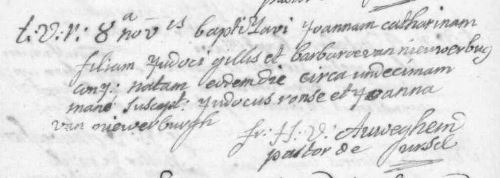 t.V.V: 8a novis baptizavi Joannam catharinam
filiam Judoci gillis et barbarae van nieuwerbug
conj: natam eodem die circa undecimam
mane suscept: Judocus ronse et Joanna
van niewerburgh
fr: J: V: Auweghem
pastor de ursel